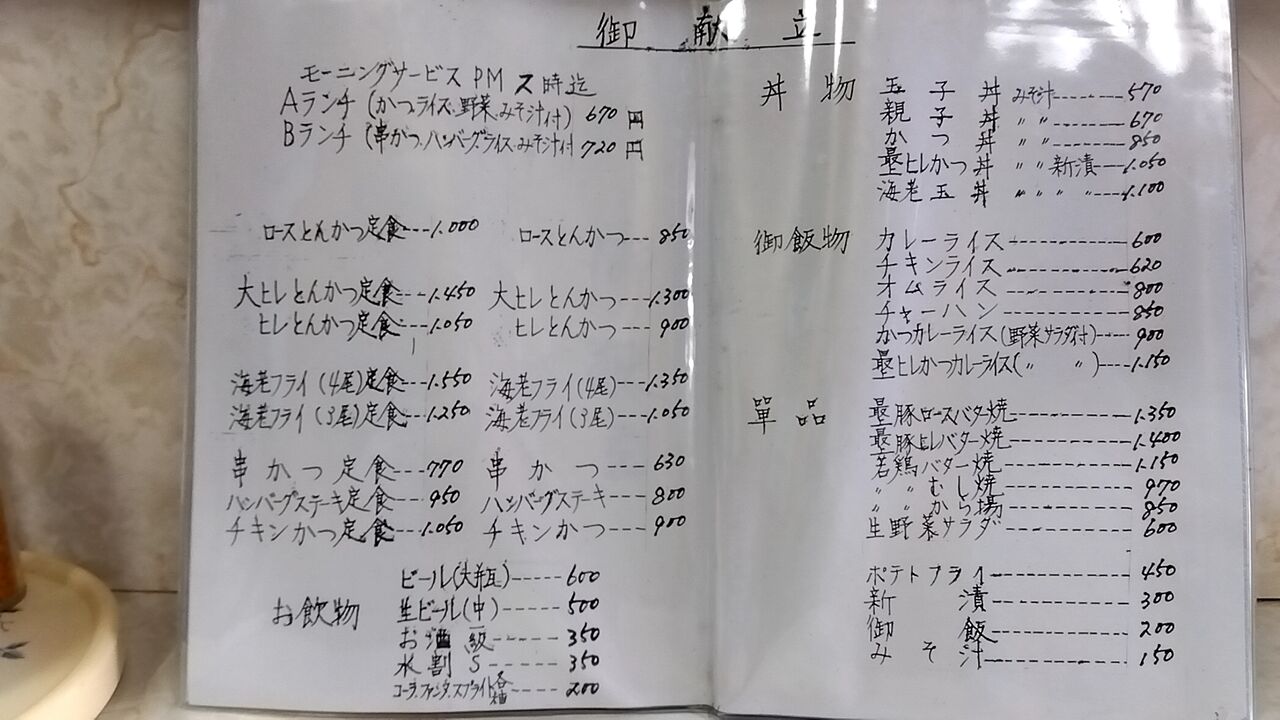 御献立
モーニングサービス PM 2時迄
Aランチ (かつ.ライス.野菜.みそ汁付) 670円
Bランチ (串かつ.ハンバーグ.ライス.みそ汁付 720円
ロースとんかつ定食---1.000 ロースとんかつ---850
大ヒレとんかつ定食---1.450 大ヒレとんかつ---1.300
ヒレとんかつ定食---1.050 ヒレとんかつ---900
海老フライ(4尾)定食---1.550 海老フライ(4尾)---1.350
海老フライ(3尾)定食---1.250 海老フライ(3尾)---1.050
串かつ定食---770 串かつ---630
ハンバーグステーキ定食---950 ハンバーグステーキ---800
チキンかつ定食---1.050 チキンかつ---900
お飲物
ビール(大瓶)-----600
生ビール(中)-----500
お酒一級-----350
水割S-----350
コーラ.ファンタ.スプライト各種-----200
丼物
玉子丼 みそ汁-----570
親子丼 〃〃-----670
かつ丼 〃〃-----850
上ヒレかつ丼 〃〃新漬---1.050
海老玉丼 〃〃〃〃---1.100
御飯物
カレーライス-----600
チキンライス-----620
オムライス-----800
チャーハン-----850
かつカレーライス(野菜サラダ付)---900
上ヒレかつカレーライス(〃 〃)---1.150
單品
豚ロースバター焼-----1.350
豚ヒレバター焼-----1.400
若鶏バター焼-----1.150
〃〃むし焼-----970
〃〃から揚-----850
生野菜サラダ-----600
ポテトフライ-----450
新漬-----300
御飯-----200
みそ汁-----150